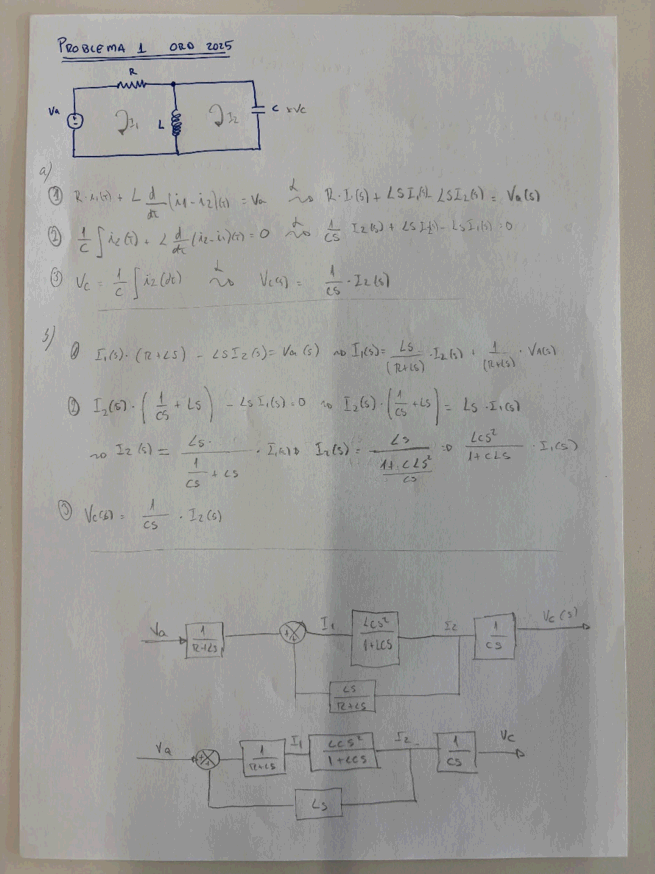 PROBLEMA 1 ORD 2025
R
Va
I1
L
I2
C
VC
a)
① R·i1(t) + L d/dt (i1-i2)(t) = Va R·I1(s) + LSI1(s) LSI2(s) = Va(s)
② 1/C ∫ i2(t) + L d/dt (i2-i1)(t) = 0 1/CS I2(s) + LSI2(s) - LSI1(s) = 0
③ VC = 1/C ∫ i2(dt) VC(s) = 1/CS · I2(s)
① I1(s)·(R+LS) - LSI2(s) = Va(s) I1(s) = LS/(R+LS) · I2(s) + 1/(R+LS) · Va(s)
② I2(s)·(1/CS + LS) - LSI1(s) = 0 I2(s)·(1/CS + LS) = LS·I1(s)
I2(s) = LS·/(1/CS + LS) · I1(s) I2(s) = LS/((1+CLS²)/CS) LCS²/(1+CLS) · I1(s)
③ VC(s) = 1/CS · I2(s)
Va 1/(R+LS) I1 LCS²/(1+LCS) I2 1/CS VC(s)
LS/(R+LS)
Va 1/(R+LS) I1 LCS²/(1+LCS) I2 1/CS VC
LS